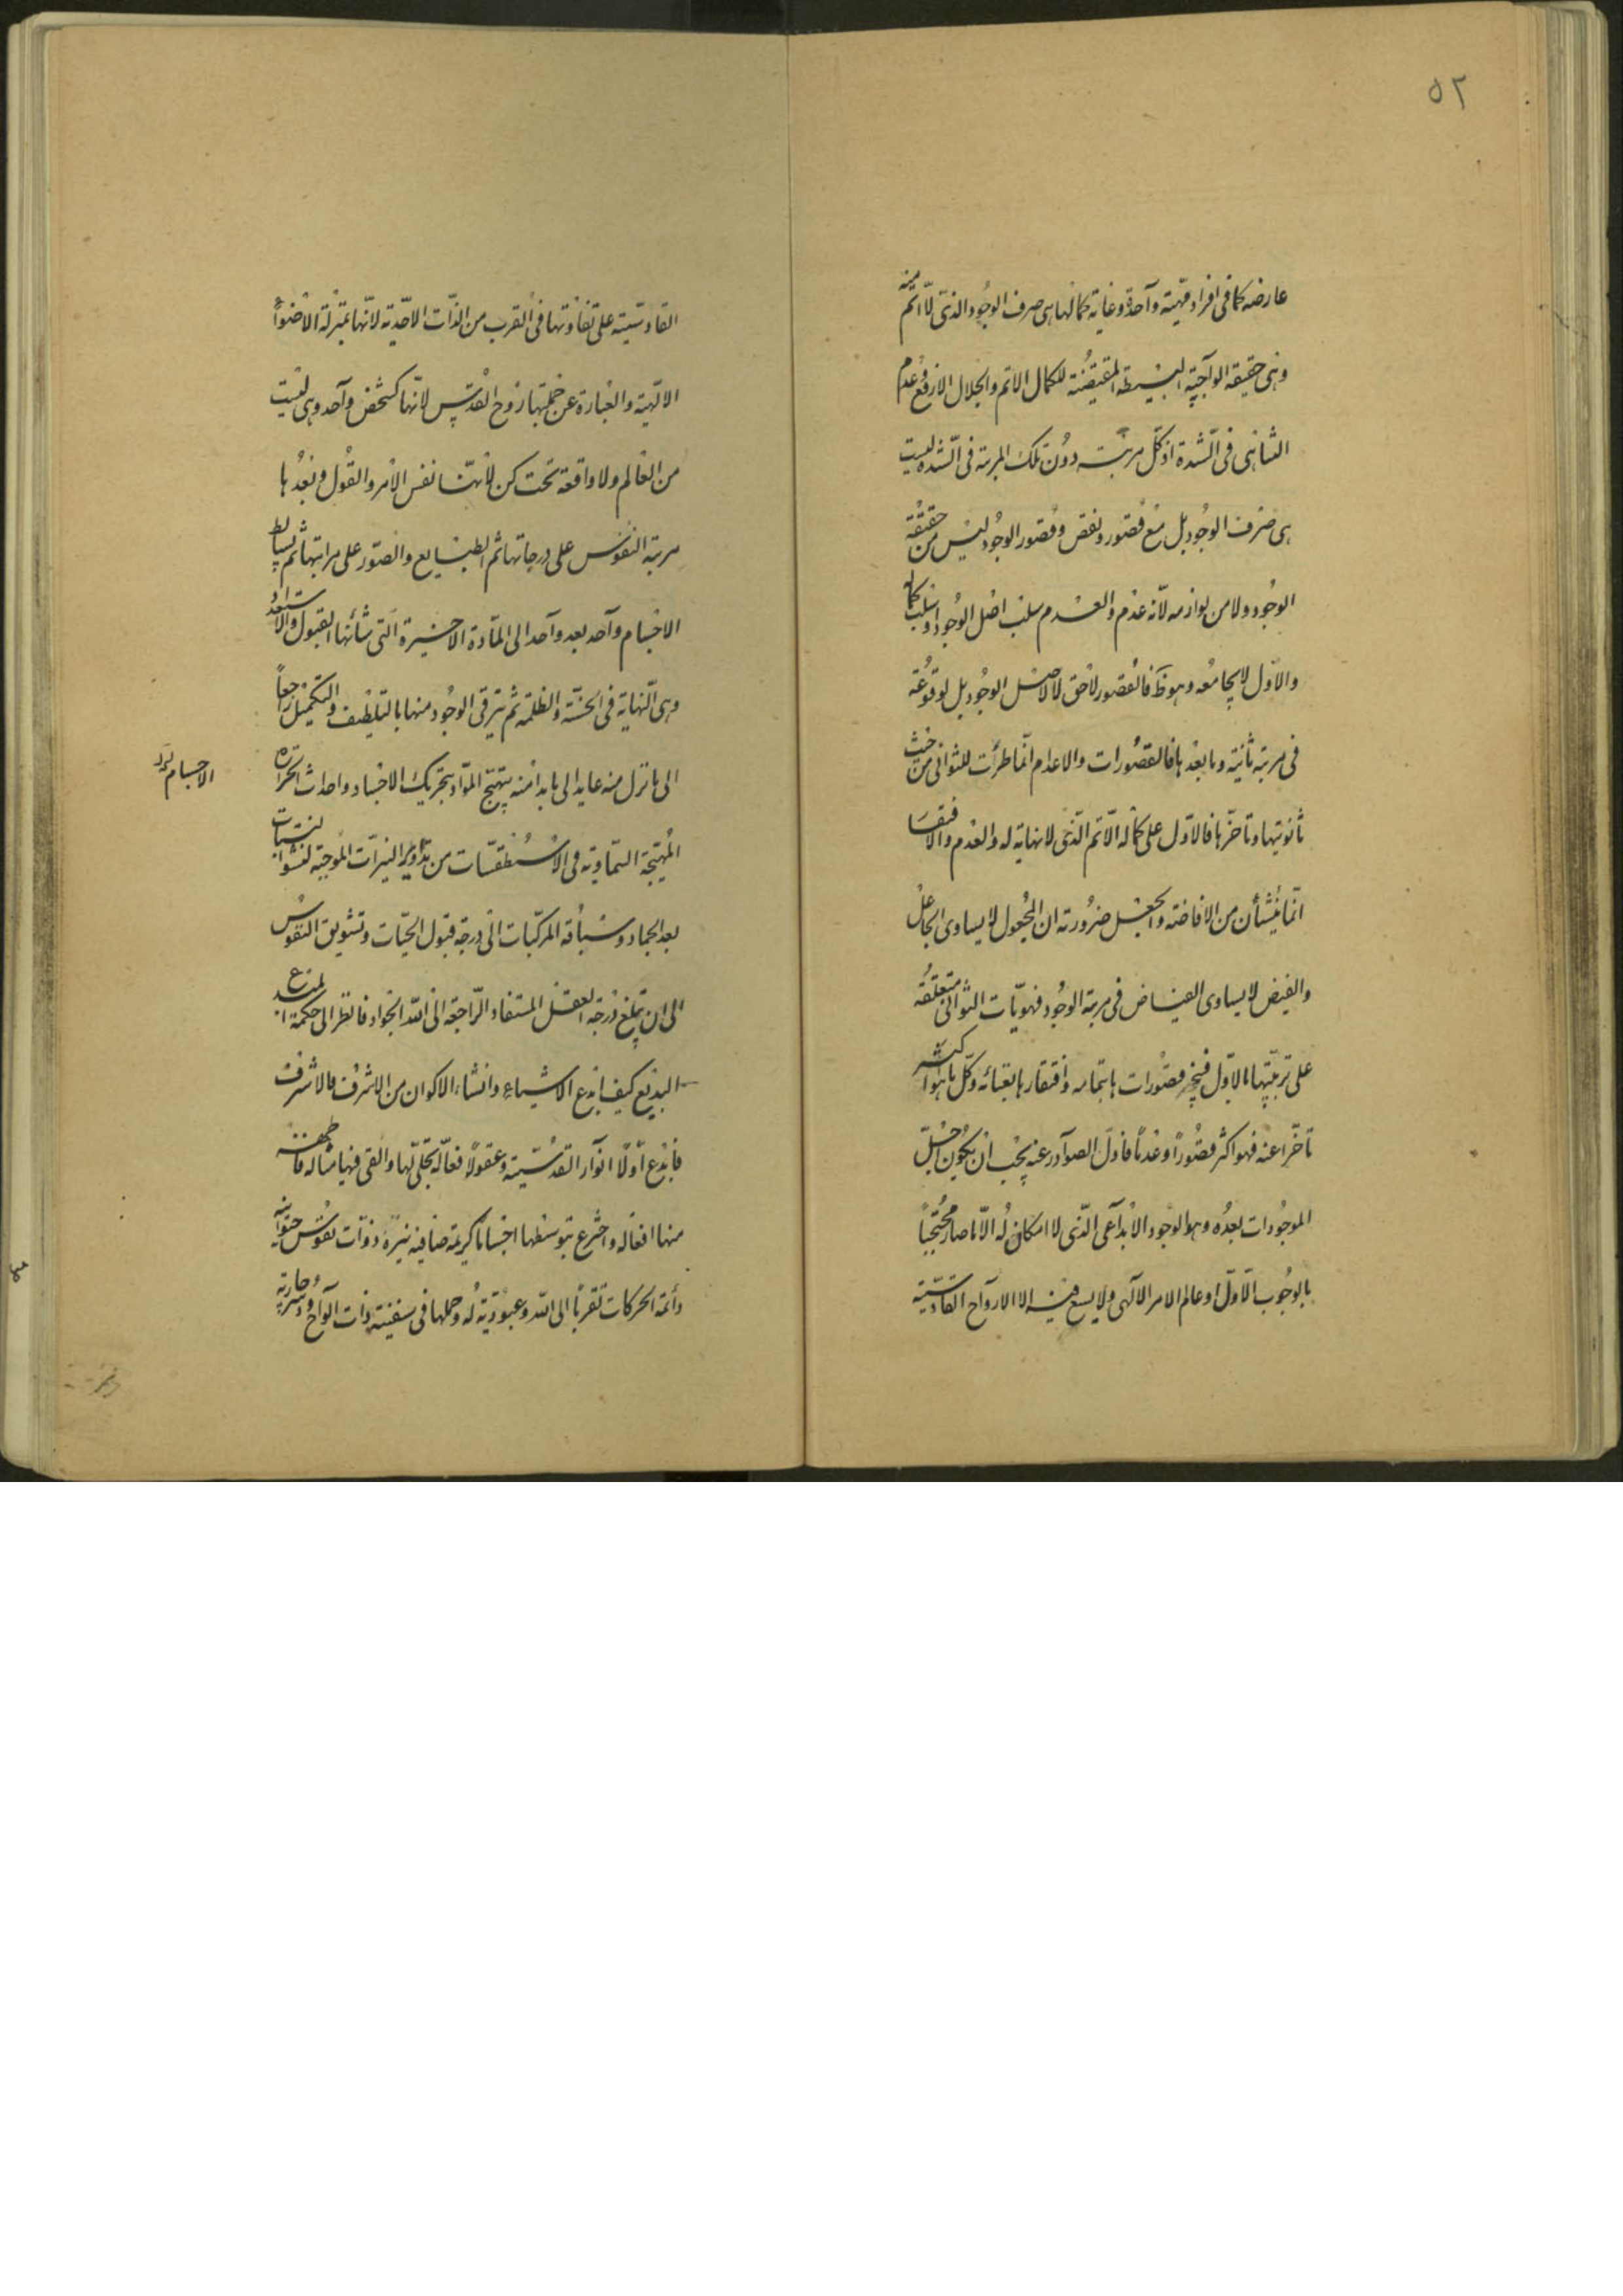 ٥٢
عارضه كما فى افراد مهيّة واحدة و غاية كمالها هى صرف الوجود الذى لا اتم منه
و هى حقيقة الواجبيّة البسيطة المقتضية للكمال الاتم و الجلال الارفع و عدم
التناهى فى الشّدة اذ كلّ مرتبة دون تلك المرتبة فى الشّدة ليست
هى صرف الوجود بل مع قصور و نقص و قصور الوجود ليس من حقيقة
الوجود و لا من لوازمه لانّه عدم و العدم سلب اصل الوجود او سلب كماله
و الاوّل لا يجامعه و هو ظ فالقصور لاحق لا لاصل الوجود بل لوقوعه
فى مرتبة ثانية و ما بعدها فالقصورات و الاعدام انّما طرأت للثوانى من حيث
ثانويتها و تأخرّها فالاوّل على كماله الاتم الّذى لا نهاية له و العدم و الافتقار
انّما ينشأن من الافاضة و الجعل ضرورة ان المجعول لا يساوى الجاعل
و الفيض لا يساوى الفياض فى مرتبة الوجود فهويّات الثوانى متعلّقة
على ترتيبها بالاوّل فينجبر قصورات بتمامه و افتقارها بغنائه و كلّ ما هو اكثر
تأخّرا عنه فهو اكثر قصوراً و عدماً فاوّل الصوادر عنه يجب ان يكون اجلّ
الموجودات بعده و هو الوجود الابداعى الّذى لا امكان له الّا ما صار محتجباً
بالوجوب الاوّل و عالم الامر الالهى و لا يسع فيه الا الارواح القادسيّة
القادسيّة على تفاوتها فى القرب من الذّات الاحّدية لانّها بمنزلة الاضواء
الالهيّة و العبارة عن جملتها روح القدس لانّها كشخص واحد و هى ليست
من العالم و لا واقعة تحت كن لانّها نفس الامر و القول و بعدها
مرتبة النفوس على درجاتها ثم الطبايع و الصّور على مراتبها ثم بسايط
الاجسام واحد بعد واحد الى المادّة الاخيرة الّتى شأنها القبول و الاستعداد
و هى النّهاية فى الخسّة و الظلمة ثم يترقى الوجود منها بالتلطيف و التكميل راجعاً
الى ما نزل منه عايدا الى ما بدا منه بتهييج المواد بتحريك الاجساد و احداث الحرارة
الاجسام
المهيّجة السّماوية فى الاسطقسّات من تداوير النيرّات الموجبة لنشو النبات
بعد الجماد و سياقة المركّبات الى درجة قبول الحيات و تشويق النفوس
الى ان تبلغ درجة العقل المستفاد الرّاجعة الى اللّه الجواد فانظر الى حكمة المبدع
البديع كيف ابدع الاشياء و انشاء الاكوان من الاشرف فالاشرف
فابدع اوّلاً انوار القدسيّة و عقولاً فعّالة تجلّى لها و القى فيها مثاله فاظهر
منها افعاله و اخترع بتوسّطها اجساماً كريمة صافية نيّرة ذوات نفوس حيوانية
دائمة الحركات تقرباً الى اللّه و عبوديّة له و حملها فى سفينة ذات الواح و دسر جارية